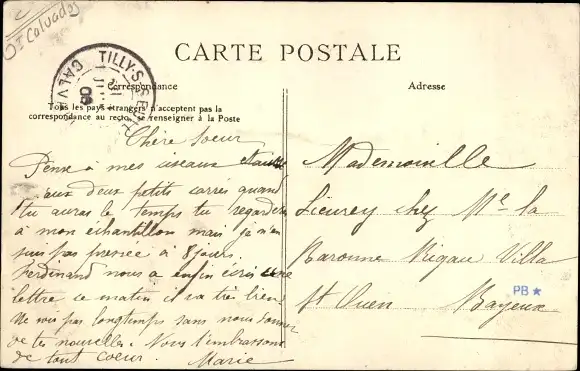 Dt Calvados
CARTE POSTALE
TILLY-S-SEULLES
CALVADOS
06
Correspondance
Adresse
Tous les pays étrangers n'acceptent pas la
correspondance au recto, se renseigner à la Poste
Chère Soeur
Pense à mes ciseaux
aux deux petits carrés quand
tu auras le temps tu regarderas
à mon échantillon mais je n'en
suis pas pressée à 8 jours.
Ferdinand nous a enfin écrit une
lettre ce matin il va très bien
Ne sois pas longtemps sans nous donner
de tes nouvelles. Nous t'embrassons
de tout coeur. Marie
Mademoiselle
Lieurey chez Me la
Baronne Rigau Villa
St Ouen Bayeux
PB